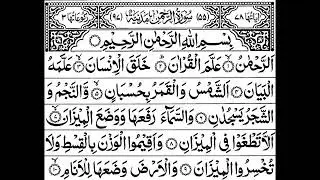 اٰیَاتُهَا ٧٨ (٥٥) سُوْرَةُ الرَّحْمٰنِ مَدَنِیَّةٌ (٩٧) رُكُوْعَاتُهَا ٣
بِسْمِ اللّٰهِ الرَّحْمٰنِ الرَّحِیْمِ
اَلرَّحْمٰنُ ۙ١ عَلَّمَ الْقُرْاٰنَ ؕ٢ خَلَقَ الْاِنْسَانَ ۙ٣ عَلَّمَهُ
الْبَیَانَ ٤ اَلشَّمْسُ وَالْقَمَرُ بِحُسْبَانٍ ۪٥ وَّالنَّجْمُ وَ
الشَّجَرُ یَسْجُدٰنِ ٦ وَالسَّمَآءَ رَفَعَهَا وَوَضَعَ الْمِیْزَانَ ۙ٧
اَلَّا تَطْغَوْا فِی الْمِیْزَانِ ٨ وَاَقِیْمُوا الْوَزْنَ بِالْقِسْطِ وَلَا
تُخْسِرُوا الْمِیْزَانَ ٩ وَالْاَرْضَ وَضَعَهَا لِلْاَنَامِ ۙ١٠